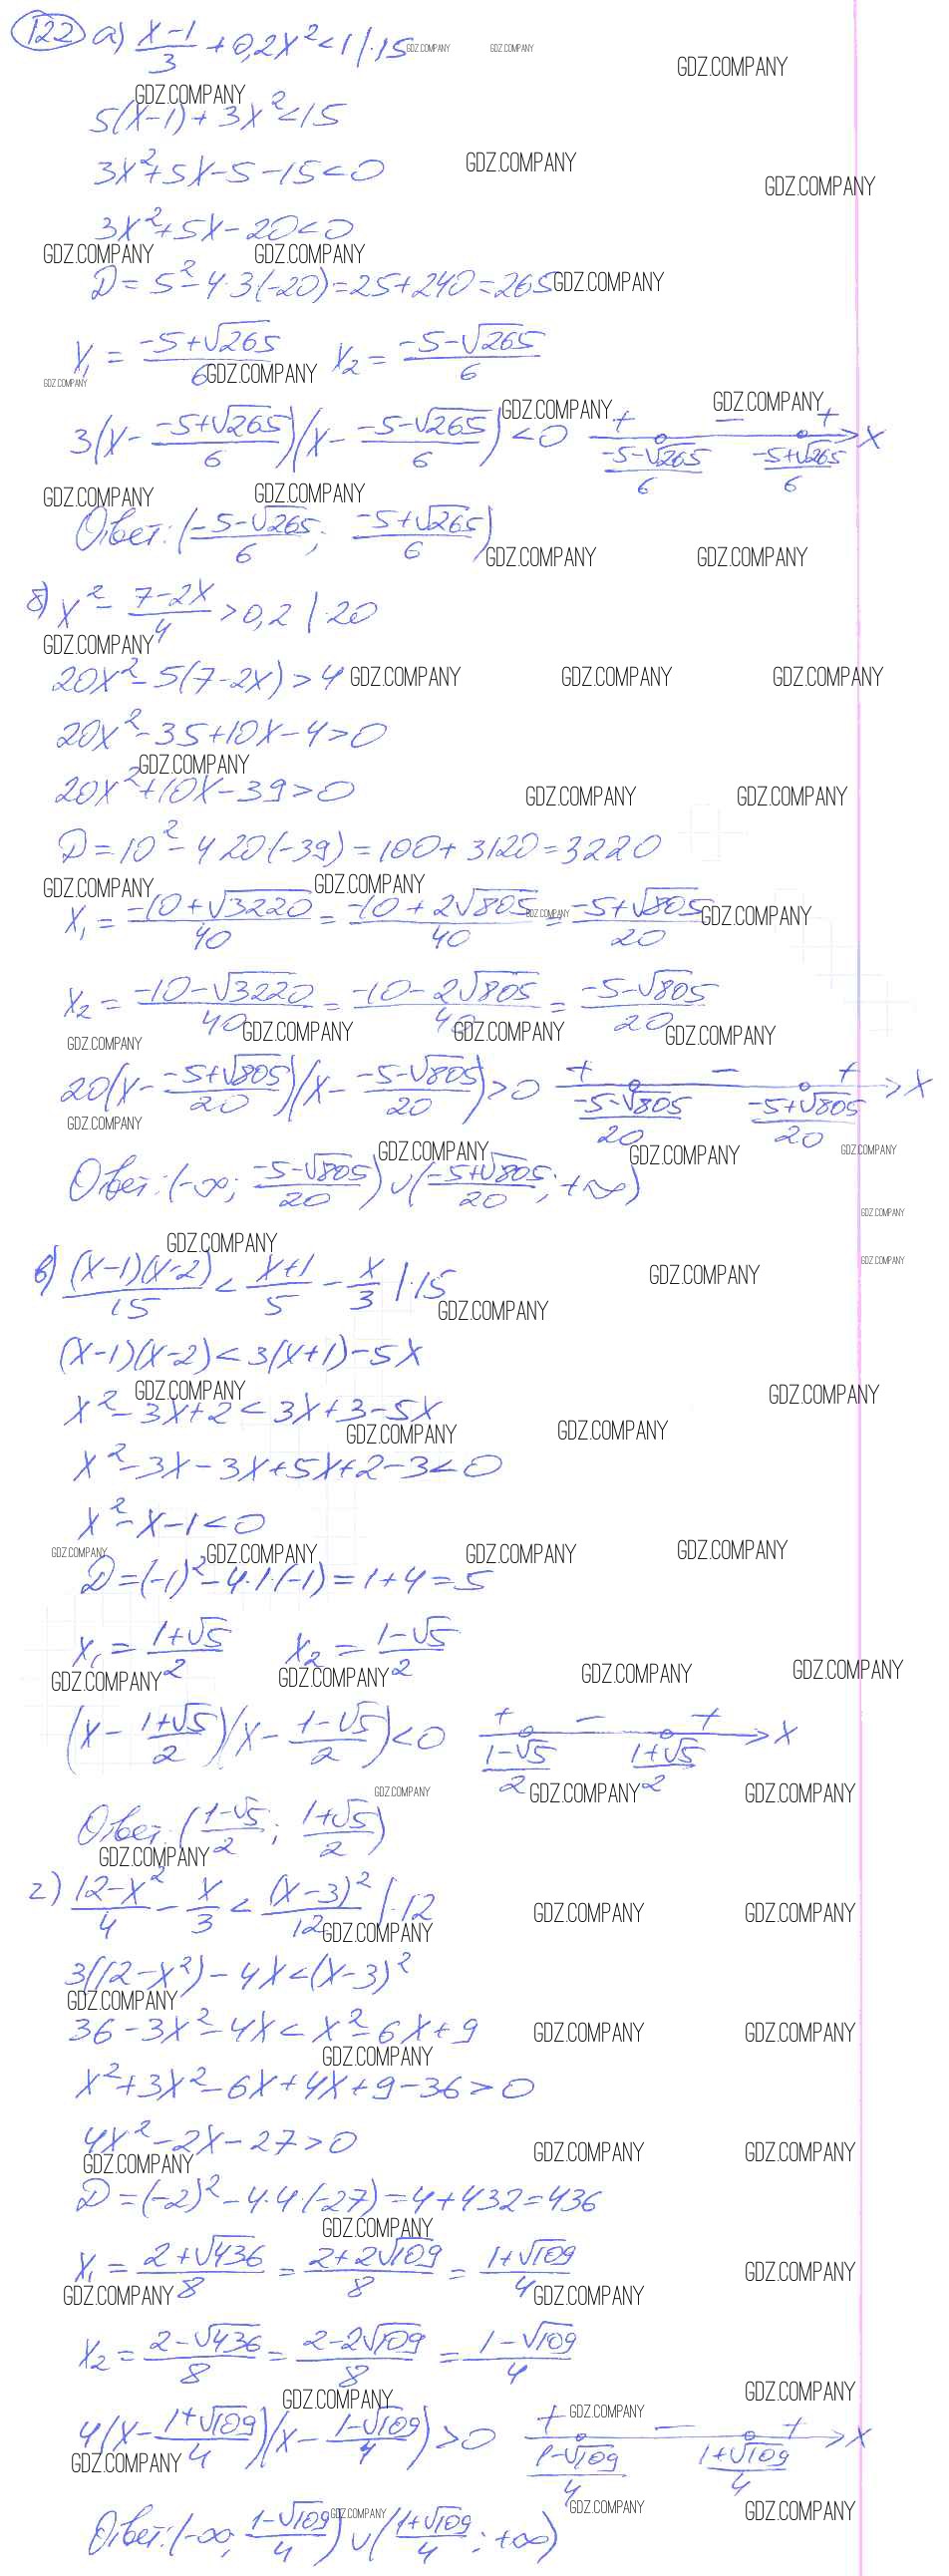 122 а) (x-1)/3 + 0,2x² < 1 | ·15
5(x-1) + 3x² < 15
3x² + 5x - 5 - 15 < 0
3x² + 5x - 20 < 0
D = 5² - 4·3(-20) = 25 + 240 = 265
x₁ = (-5+√265)/6 x₂ = (-5-√265)/6
3(x - (-5+√265)/6)(x - (-5-√265)/6) < 0 + - + x
(-5-√265)/6 (-5+√265)/6
Ответ: ((-5-√265)/6; (-5+√265)/6)
б) x² - (7-2x)/4 > 0,2 | ·20
20x² - 5(7-2x) > 4
20x² - 35 + 10x - 4 > 0
20x² + 10x - 39 > 0
D = 10² - 4·20(-39) = 100 + 3120 = 3220
x₁ = (-10+√3220)/40 = (-10+2√805)/40 = (-5+√805)/20
x₂ = (-10-√3220)/40 = (-10-2√805)/40 = (-5-√805)/20
20(x - (-5+√805)/20)(x - (-5-√805)/20) > 0 + - + x
(-5-√805)/20 (-5+√805)/20
Ответ: (-∞; (-5-√805)/20) ∪ ((-5+√805)/20; +∞)
в) (x-1)(x-2)/15 < (x+1)/5 - x/3 | ·15
(x-1)(x-2) < 3(x+1) - 5x
x² - 3x + 2 < 3x + 3 - 5x
x² - 3x - 3x + 5x + 2 - 3 < 0
x² - x - 1 < 0
D = (-1)² - 4·1·(-1) = 1 + 4 = 5
x₁ = (1+√5)/2 x₂ = (1-√5)/2
(x - (1+√5)/2)(x - (1-√5)/2) < 0 + - + x
(1-√5)/2 (1+√5)/2
Ответ: ((1-√5)/2; (1+√5)/2)
г) (12-x²)/4 - x/3 < (x-3)²/12 | ·12
3(12-x²) - 4x < (x-3)²
36 - 3x² - 4x < x² - 6x + 9
x² + 3x² - 6x + 4x + 9 - 36 > 0
4x² - 2x - 27 > 0
D = (-2)² - 4·4·(-27) = 4 + 432 = 436
x₁ = (2+√436)/8 = (2+2√109)/8 = (1+√109)/4
x₂ = (2-√436)/8 = (2-2√109)/8 = (1-√109)/4
4(x - (1+√109)/4)(x - (1-√109)/4) > 0 + - + x
(1-√109)/4 (1+√109)/4
Ответ: (-∞; (1-√109)/4) ∪ ((1+√109)/4; +∞)
GDZ.COMPANY